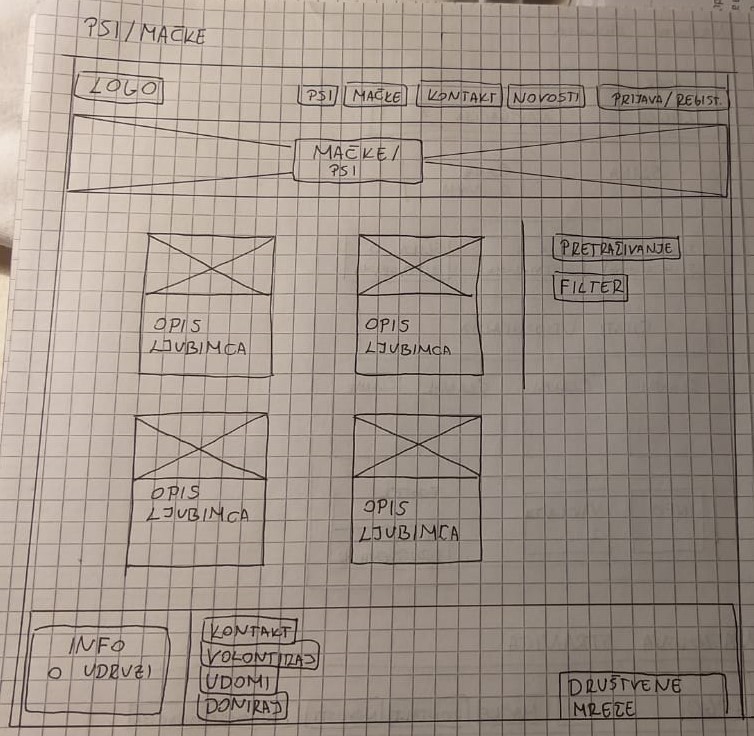 PSI/MAČKE
LOGO
PSI
MAČKE
KONTAKT
NOVOSTI
PRIJAVA/REGIST.
MAČKE/
PSI
PRETRAŽIVANJE
FILTER
OPIS
LJUBIMCA
OPIS
LJUBIMCA
OPIS
LJUBIMCA
OPIS
LJUBIMCA
INFO
O UDRUZI
KONTAKT
VOLONTIRAJ
UDOMI
DONIRAJ
DRUŠTVENE
MREŽE